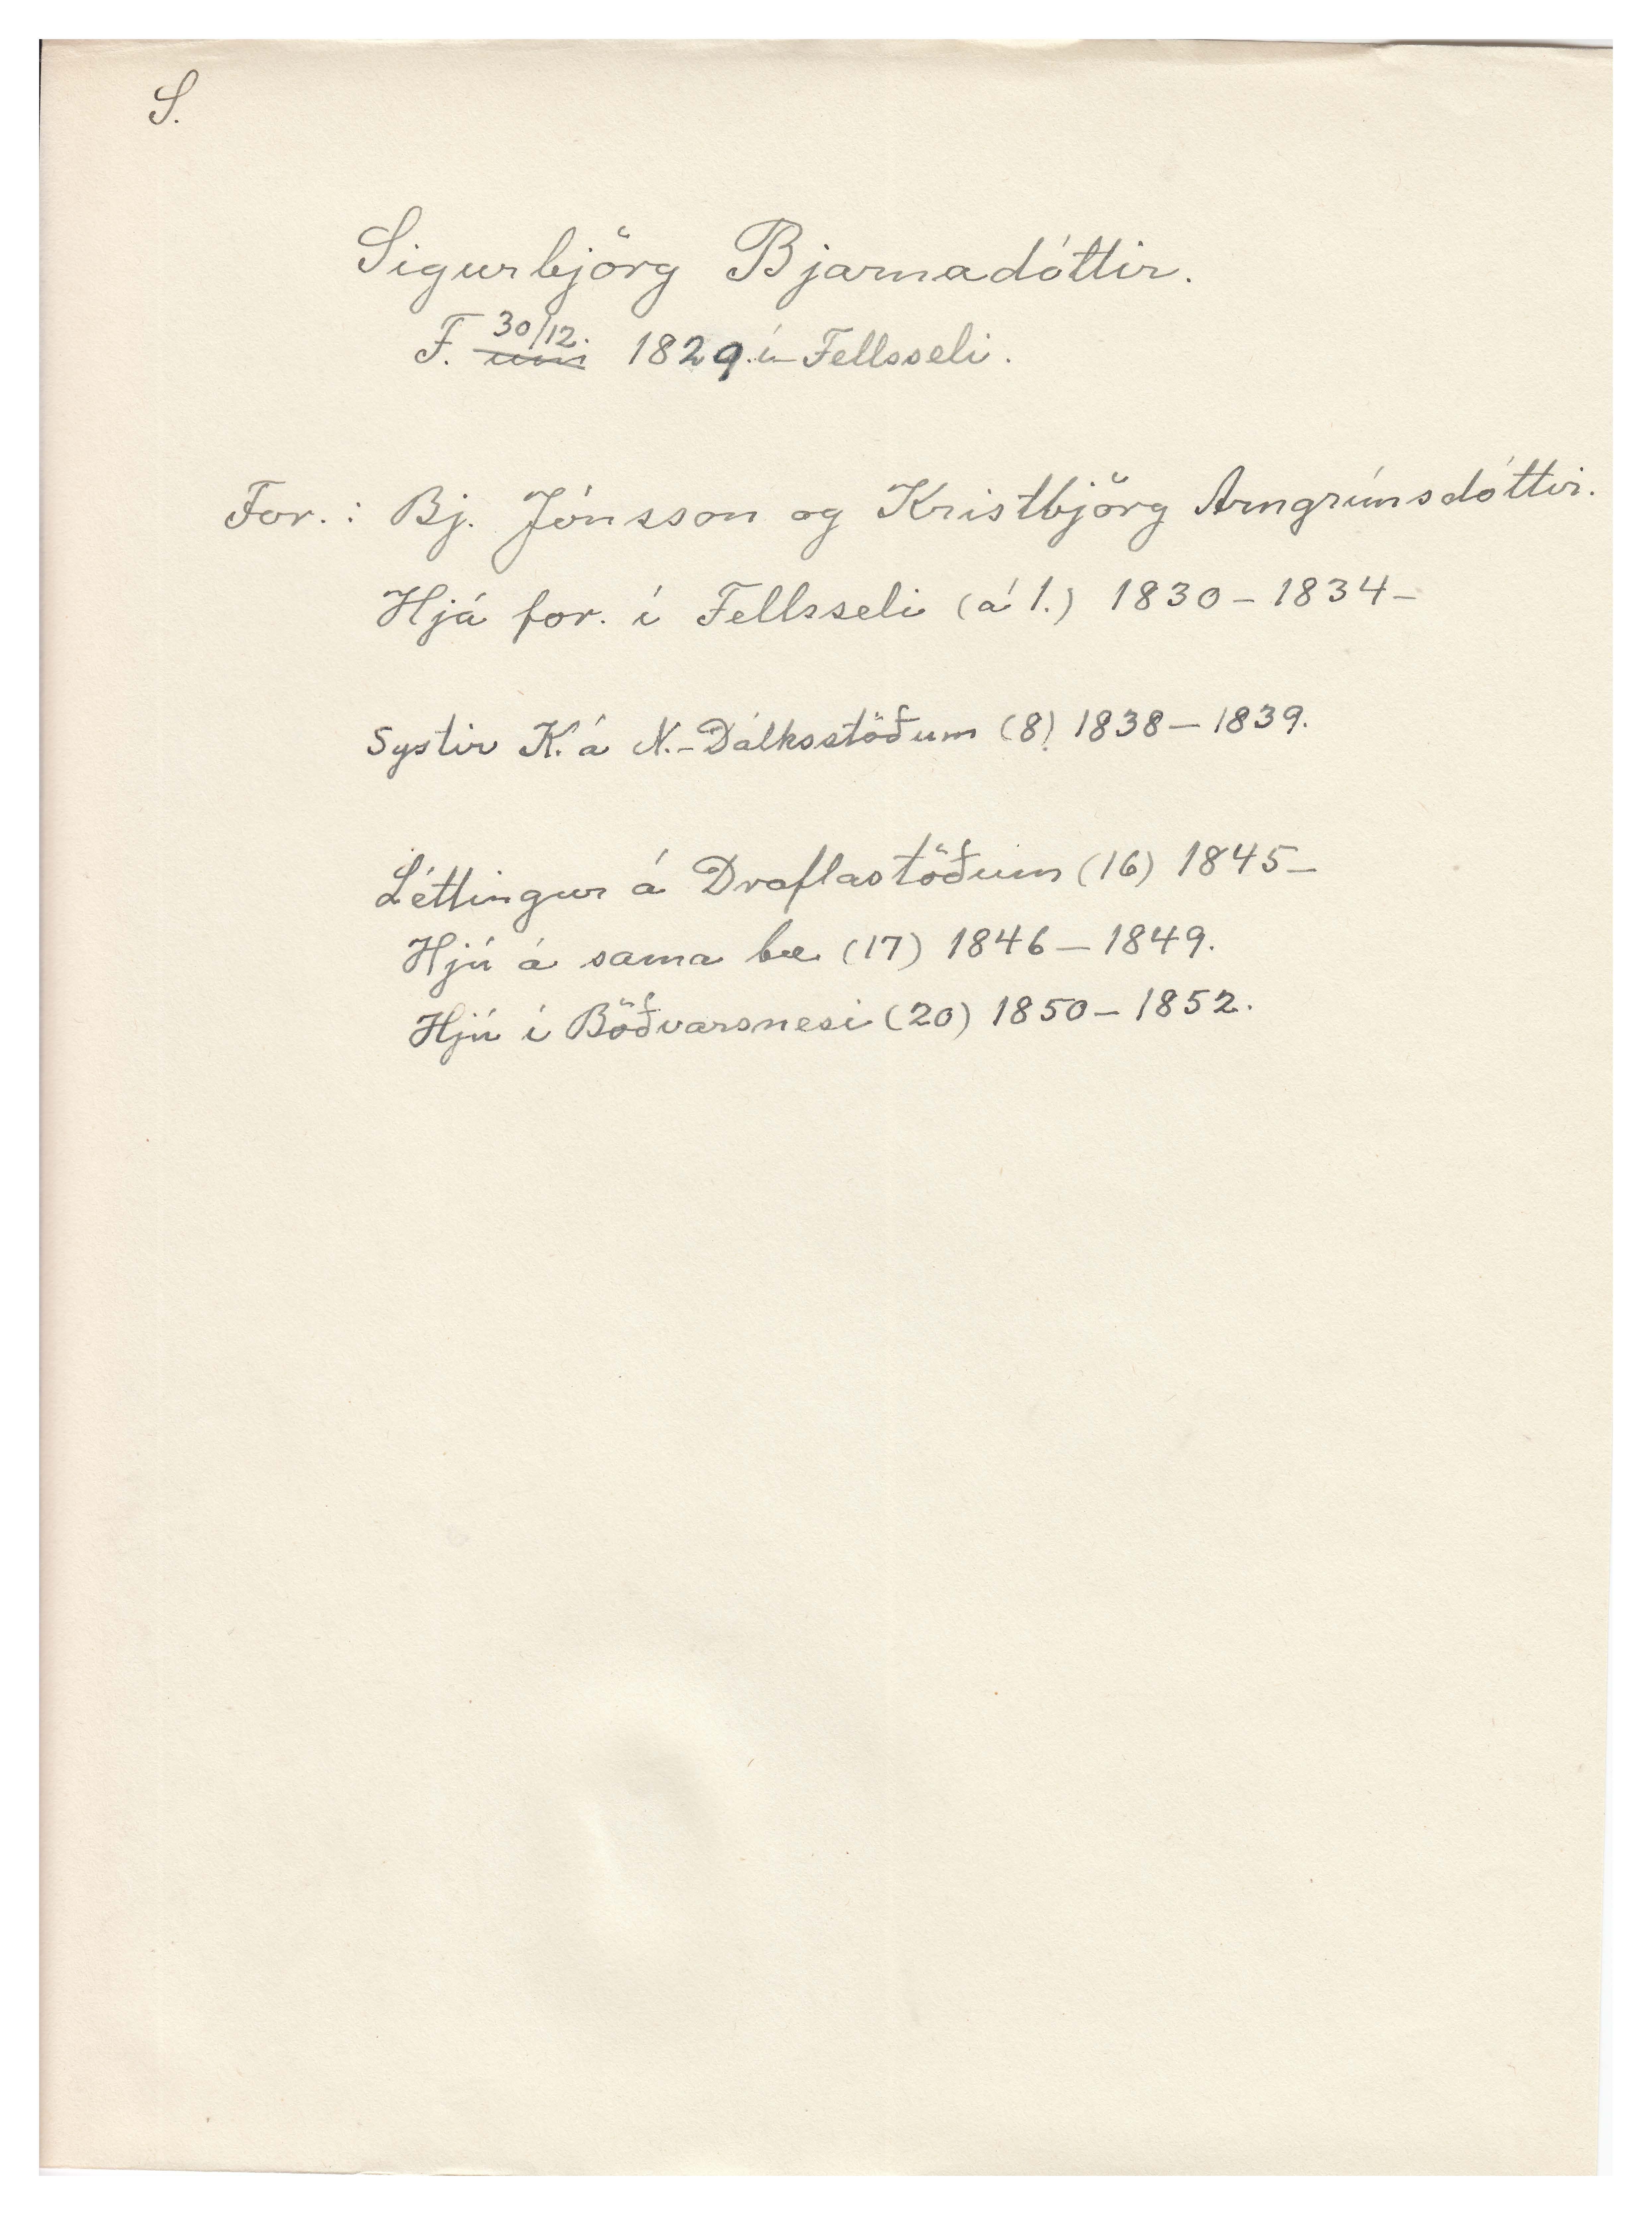 S.
Sigurbjörg Bjarnadóttir.
F. um 30/12. 1829. í Fellsseli.
For.: Bj. Jónsson og Kristbjörg Arngrímsdóttir.
Hjá for. í Fellsseli (á 1.) 1830 – 1834 –
Systir K. á N.-Dálksstöðum (8) 1838 – 1839.
Léttingur á Draflastöðum (16) 1845 –
Hjú á sama bæ (17) 1846 – 1849.
Hjú í Böðvarsnesi (20) 1850 – 1852.